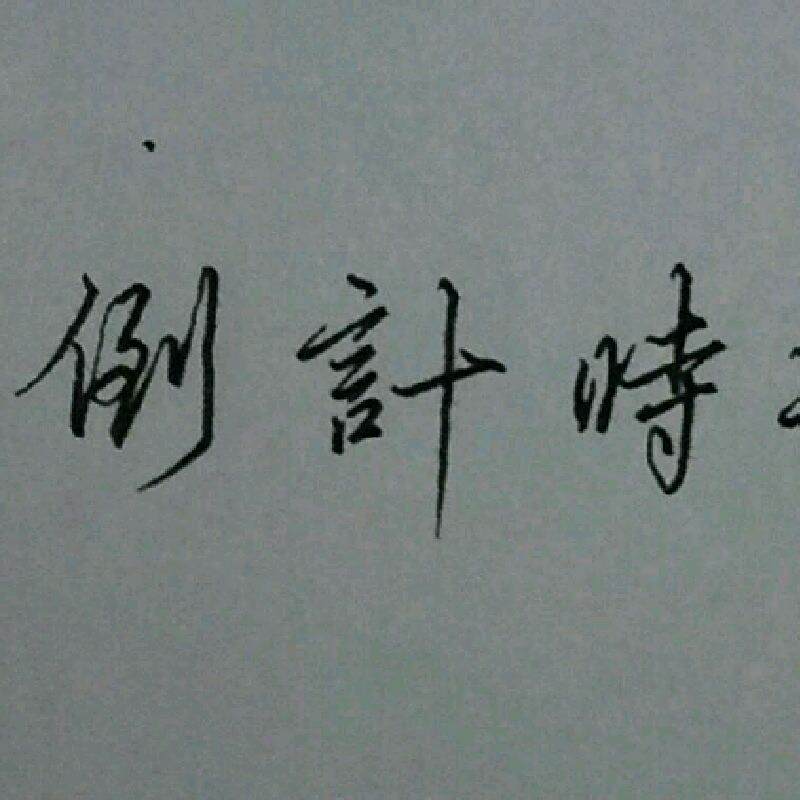 倒計時